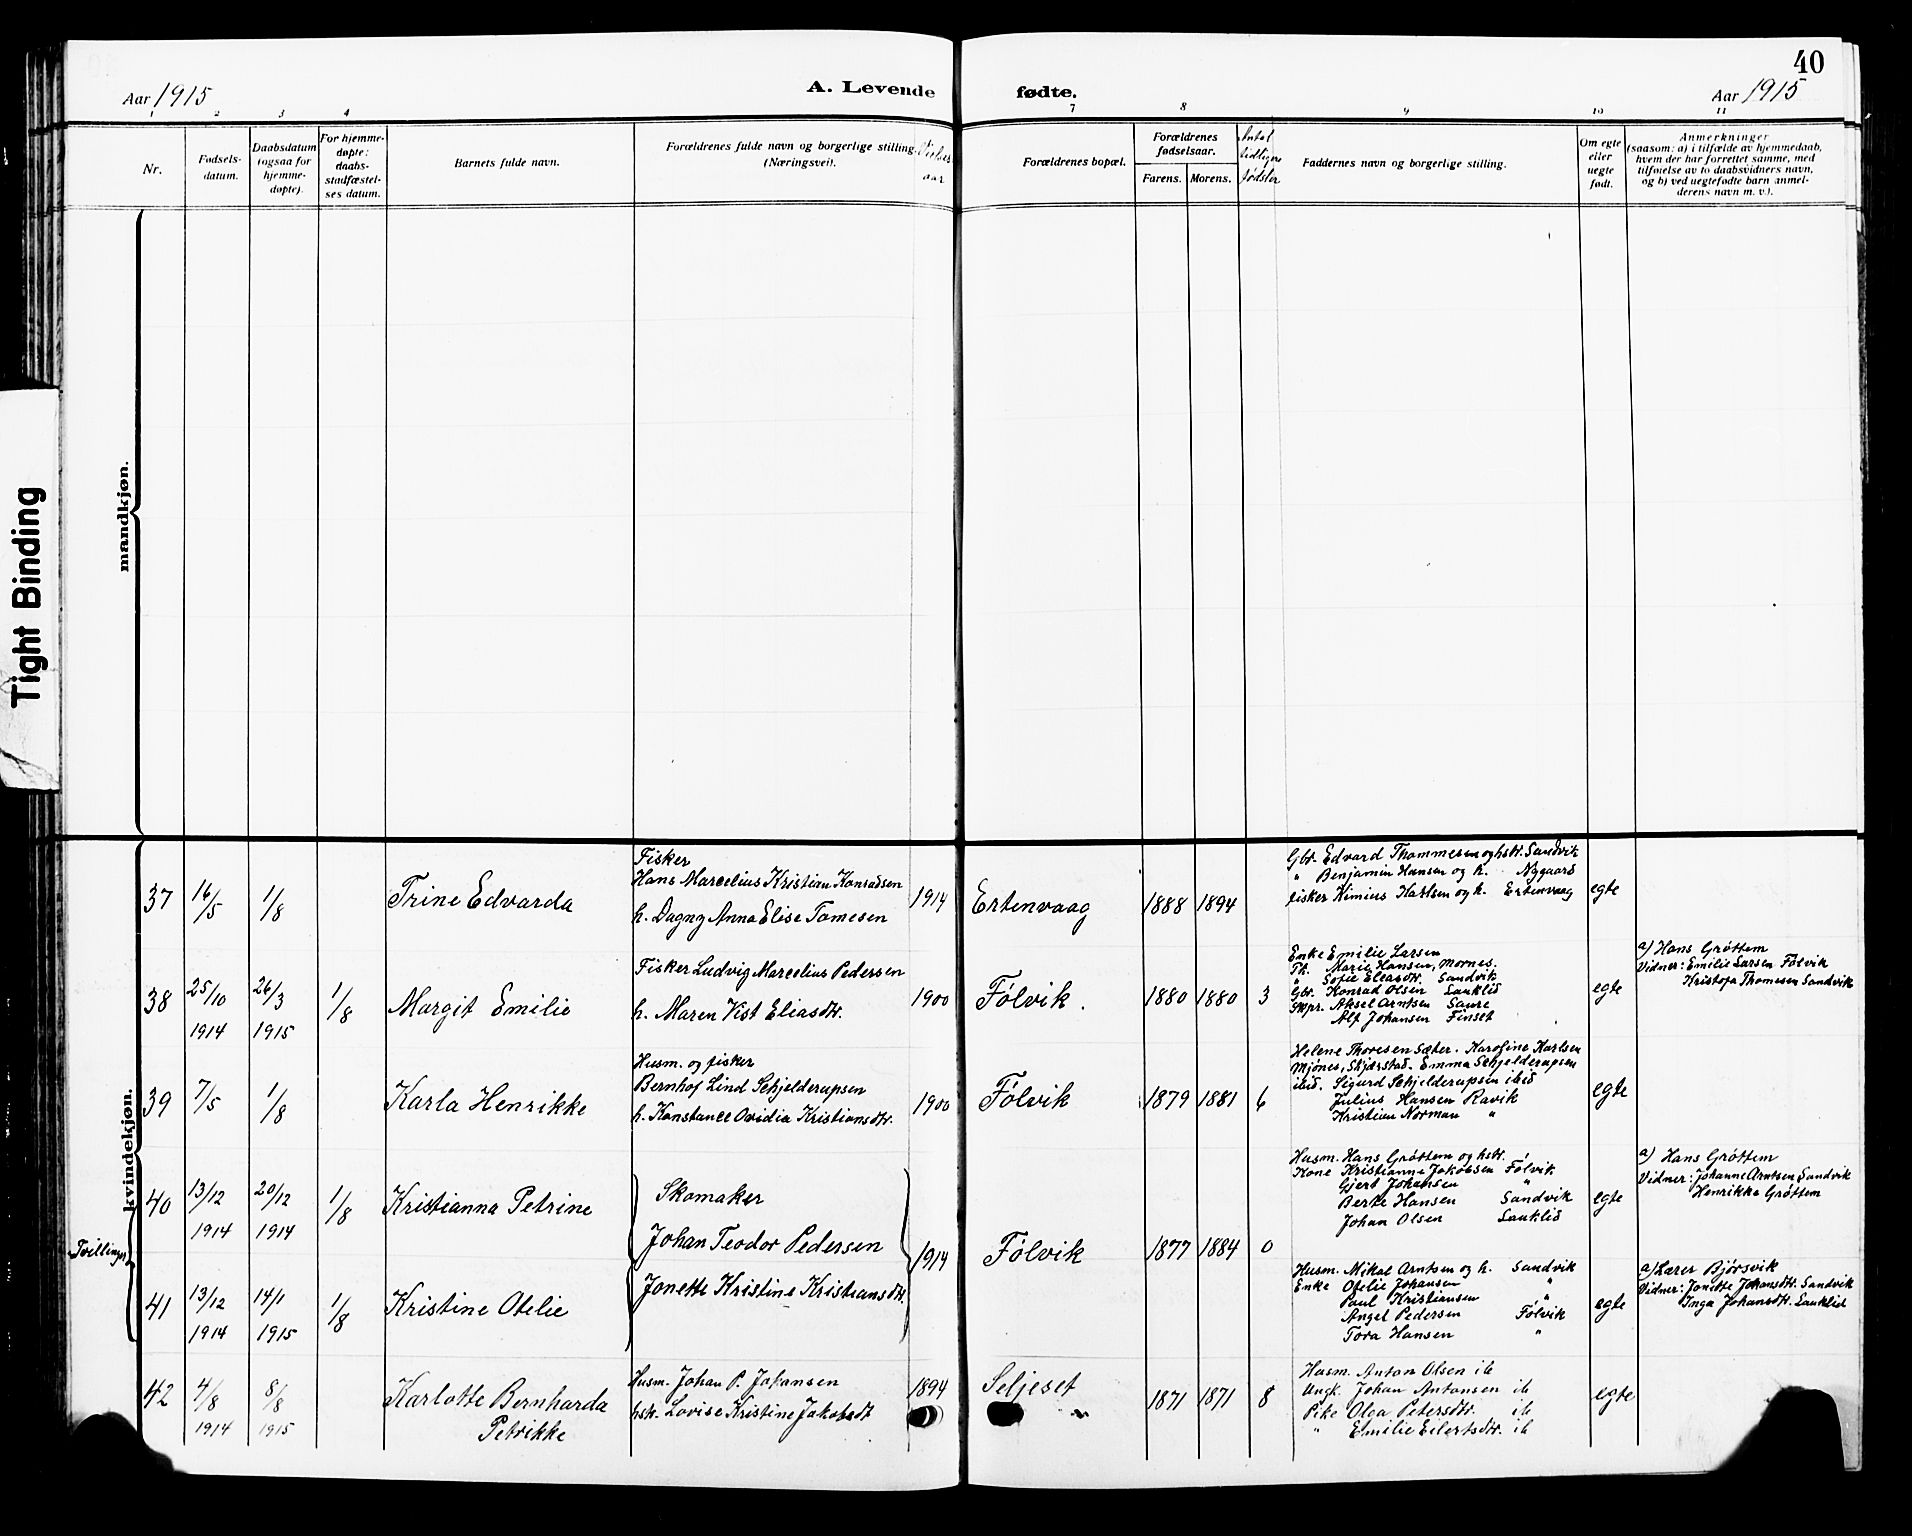 40
Aar 1915
A. Levende fødte.
Aar 1915
1 2 3 4 7 8 9 10 11
Nr.
Fødsels-
datum.
Daabsdatum
(ogsaa for
hjemme-
døpte).
For hjemme-
døpte:
daabs-
stadfæstel-
ses datum.
Barnets fulde navn.
Forældrenes fulde navn og borgerlige stilling
(Næringsvei).
Vielses
aar
Forældrenes bopæl.
Forældrenes
fødselsaar.
Farens. Morens.
Antal
tidligere
fødsler
Faddernes navn og borgerlige stilling.
Om egte
eller
uegte
født.
Anmerkninger
(saasom: a) i tilfælde av hjemmedaab,
hvem der har forrettet samme, med
tilføielse av to daabsvidners navn,
og b) ved uegtefødte barn anmel-
derens navn m. v.).
Tight Binding
mandkjøn.
kvindekjøn.
37
16/5
1/8
Trine Edvarda
Fisker
Hans Marcelius Kristian Konradsen
h. Dagny Anna Elise Tomesen
1914
Ertenvaag
1888 1894
Gbr. Edvard Thommesen og hstr. Sandvik
" Benjamin Hansen og h. Nygaard
fisker Kimius Karlsen og h. Ertenvaag
egte
38
25/10
1914
26/3
1915
1/8
Margit Emilie
Fisker Ludvig Marcelius Pedersen
h. Maren Kist Eliasdtr.
1900
Følvik.
1880 1880 3
Enke Emilie Larsen
Pk. Marie Hansen, Mornes.
" Sofie Eleasdtr. Sandvik
Gbr. Konrad Olsen Lauklid
Aksel Arntsen Saure
Alf Johansen Finset
egte
a) Hans Grøttem
Vidner: Emilie Larsen Følvik
Kristofa Thomesen Sandvik
39
7/5
1/8
Karla Henrikke
Husm. og fisker
Bernhof Lind Schjelderupsen
h. Konstance Ovidia Kristiansdtr.
1900
Følvik
1879 1881 6
Helene Thoresen Sæter. Karoline Karlsen
Mjønes, Skjærstad. Emma Schjelderupsen
ibid. Sigurd Schjelderupsen ibid
Julius Hansen Ravik
Kristian Norman "
egte
Tvillinger
40
13/12
1914
20/12
1914
1/8
Kristianna Petrine
Skomaker
Johan Teodor Pedersen
Jonette Kristine Kristiansdtr.
1914
Følvik
1877 1884 0
Husm. Hans Grøttem og hstr.
Kone Kristianne Jakobsen Følvik
Gjert Johansen "
Berte Hansen Sandvik
Johan Olsen Lauklid
egte
a) Hans Grøttem
Vidner: Johanne Arntsen Sandvik
Henrikke Grøttem
41
13/12
1914
14/1
1915
1/8
Kristine Otelie
Husm. Mikal Arntsen og h. Sandvik
Enke Otelie Johansen "
Paul Kristiansen "
Angel Pedersen Følvik
Tora Hansen "
egte
a) Lærer Bjørsvik
Vidner: Jonette Johansdtr. Sandvik
Inga Johansdtr. Lauklid
42
4/8
1914
8/8
1915
Karlotte Bernharda
Petrikke
Husm. Johan P. Johansen
hstr. Lovise Kristine Jakobsdt
1894
Seljeset
1871 1871 8
Husm. Anton Olsen ib
Ungk. Johan Antonsen ib
Pike Olga Petersdtr. ib
" Emilie Eilertsdtr. ib
egte